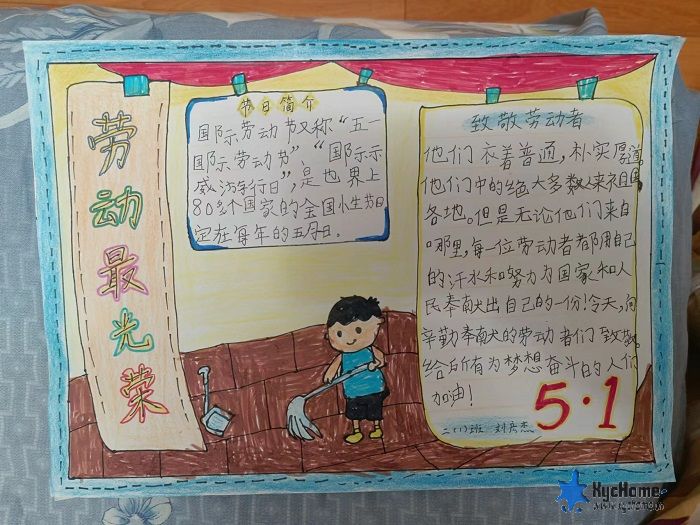 劳动最光荣
节日简介
国际劳动节又称“五一
国际劳动节”、“国际示
威游行日”,是世界上
80多个国家的全国性节日
定在每年的五月一日。
致敬劳动者
他们衣着普通,朴实厚道。
他们中的绝大多数人来祖国
各地。但是无论他们来自
哪里,每一位劳动者都用自己
的汗水和努力为国家和人
民奉献出自己的一份!今天,向
辛勤奉献的劳动者们致敬。
给所有为梦想奋斗的人们
加油!
5·1
二(1)班
XycHome